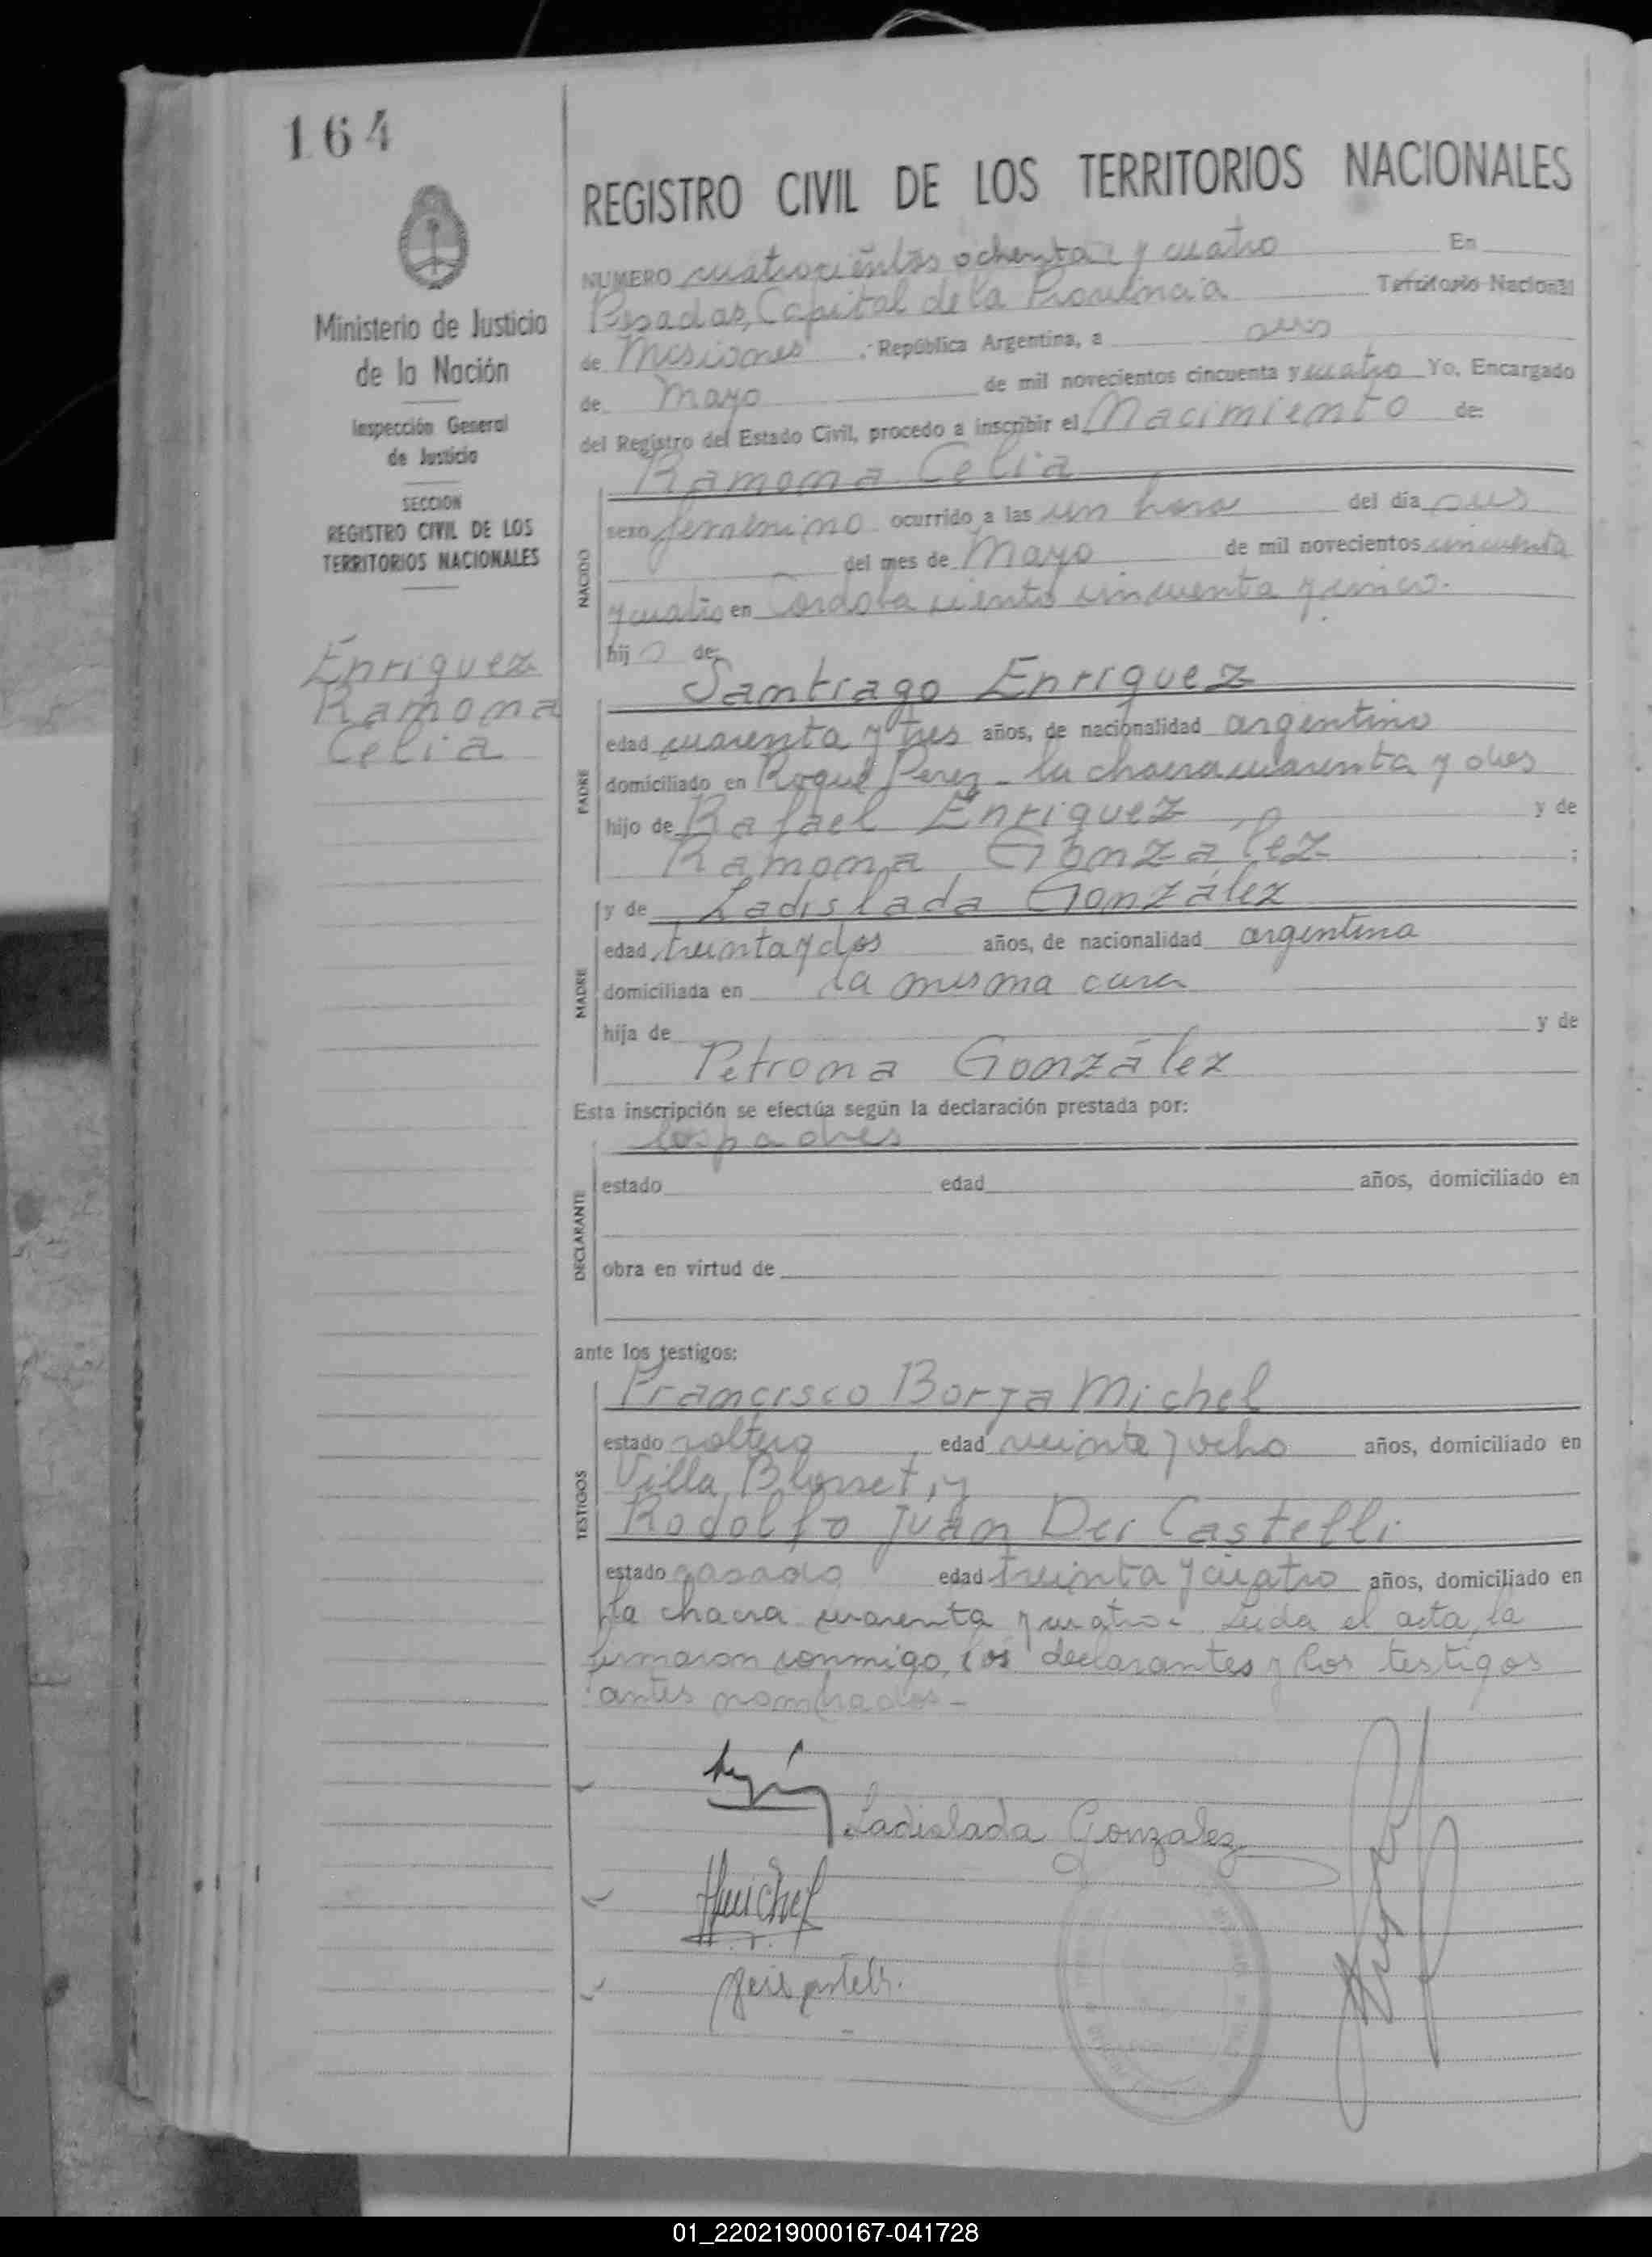 164
Ministerio de Justicia
de la Nación
Inspección General
de Justicia
SECCION
REGISTRO CIVIL DE LOS
TERRITORIOS NACIONALES
Enriquez
Ramona
Celia
REGISTRO CIVIL DE LOS TERRITORIOS NACIONALES
NUMERO cuatrocientos ochenta y cuatro En
Posadas, Capital de la Provincia Territorio Nacional
de Misiones República Argentina, a
de Mayo de mil novecientos cincuenta y cuatro Yo, Encargado
del Registro del Estado Civil, procedo a inscribir el Nacimiento de:
Ramona Celia
NACIDO
sexo femenino ocurrido a las un hora del día
del mes de Mayo de mil novecientos cincuenta
y cuatro en Cordoba ciento cincuenta y cinco.
hij de:
Santiago Enriquez
PADRE
edad cuarenta y tres años, de nacionalidad argentino
domiciliado en Roque Perez - la chacra cuarenta y dos
hijo de Rafael Enriquez y de
Ramona González ;
y de Ladislada González
MADRE
edad treinta y dos años, de nacionalidad argentina
domiciliada en la misma casa
hija de y de
Petrona González
Esta inscripción se efectúa según la declaración prestada por:
los padres
DECLARANTE
estado edad años, domiciliado en
obra en virtud de
ante los testigos:
Francisco Borja Michel
TESTIGOS
estado soltero edad veinte y ocho años, domiciliado en
Villa Blosset, y
Rodolfo Juan Dei Castelli
estado casado edad treinta y cuatro años, domiciliado en
la chacra cuarenta y cuatro - Leída el acta, la
firmaron conmigo, los declarantes y los testigos
antes nombrados -
Ladislada Gonzalez
Michel
01_220219000167-041728